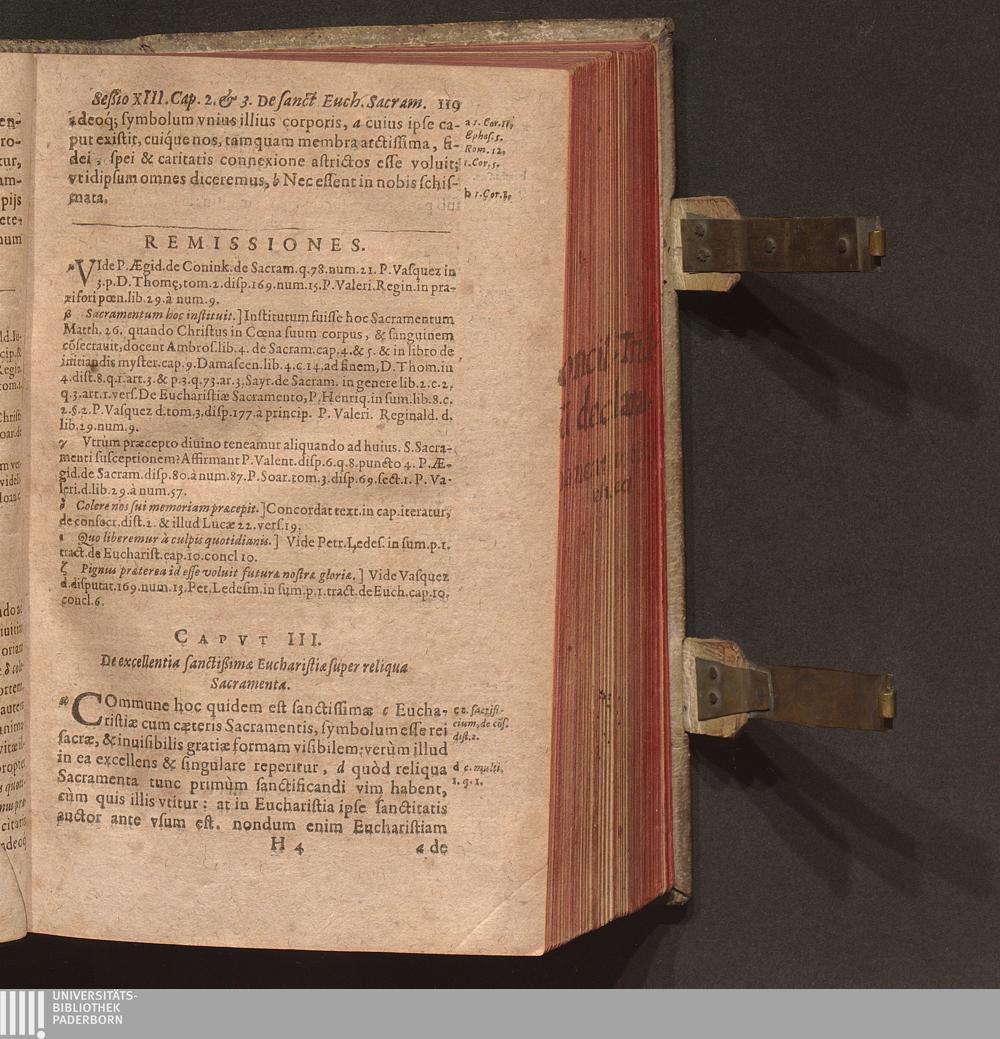 Sessio XIII. Cap. 2. & 3. De sanct. Euch. Sacram. 119
adeoq; symbolum vnius illius corporis, a cuius ipse ca-
put existit, cuique nos, tamquam membra arctissima, fi-
dei, spei & caritatis connexione astrictos esse voluit;
vt idipsum omnes diceremus, b Nec essent in nobis schis-
mata.
a 1. Cor. 11,
Ephes. 5.
Rom. 12,
1. Cor. 5.
b 1. Cor. 8,
REMISSIONES.
α VIde P. Ægid. de Conink. de Sacram. q. 78. num. 21. P. Vasquez in
3. p. D. Thomę, tom. 2. disp. 169. num. 15. P. Valeri. Regin. in pra-
xi fori pœn. lib. 29. à num. 9.
β Sacramentum hoc instituit.] Institutum fuisse hoc Sacramentum
Matth. 26. quando Christus in Cœna suum corpus, & sanguinem
cōsecrauit, docent Ambros. lib. 4. de Sacram. cap. 4. & 5. & in libro de
initiandis myster. cap. 9. Damascen. lib. 4. c. 14. ad finem, D. Thom. in
4. dist. 8. q. 1. art. 3. & p. 3. q. 73. ar. 3. Sayr. de Sacram. in genere lib. 2. c. 2.
q. 3. art. 1. vers. De Eucharistiæ Sacramento, P. Henriq. in sum. lib. 8. c.
2. §. 2. P. Vasquez d. tom. 3. disp. 177. à princip. P. Valeri. Reginald. d.
lib. 29. num. 9.
γ Vtrùm præcepto diuino teneamur aliquando ad huius. S. Sacra-
menti susceptionem? Affirmant P. Valent. disp. 6. q. 8. puncto 4. P. Æ-
gid. de Sacram. disp. 80. à num. 87. P. Soar. tom. 3. disp. 69. sect. 1. P. Va-
leri. d. lib. 29. à num. 57.
δ Colere nos sui memoriam præcepit.] Concordat text. in cap. iteratur,
de consecr. dist. 2. & illud Lucæ 22. vers. 19.
ε Quo liberemur à culpis quotidianis.] Vide Petr. Ledes. in sum. p. 1.
tract. de Eucharist. cap. 10. concl 10.
ζ Pignus præterea id esse voluit futuræ nostræ gloriæ.] Vide Vasquez
d. disputat. 169. num. 13. Pet. Ledesm. in sum. p. 1. tract. de Euch. cap. 10.
concl. 6.
CAPVT III.
De excellentia sanctißimæ Eucharistiæ super reliqua
Sacramenta.
α COmmune hoc quidem est sanctissimæ c Eucha-
ristiæ cum cæteris Sacramentis, symbolum esse rei
sacræ, & inuisibilis gratiæ formam visibilem: verùm illud
in ea excellens & singulare reperitur, d quòd reliqua
Sacramenta tunc primùm sanctificandi vim habent,
cùm quis illis vtitur: at in Eucharistia ipse sanctitatis
auctor ante vsum est. nondum enim Eucharistiam
c c. sacrifi-
cium, de cōs.
dist. 2.
d c. multi,
1. q. 1.
H 4
a de
UNIVERSITÄTS-
BIBLIOTHEK
PADERBORN